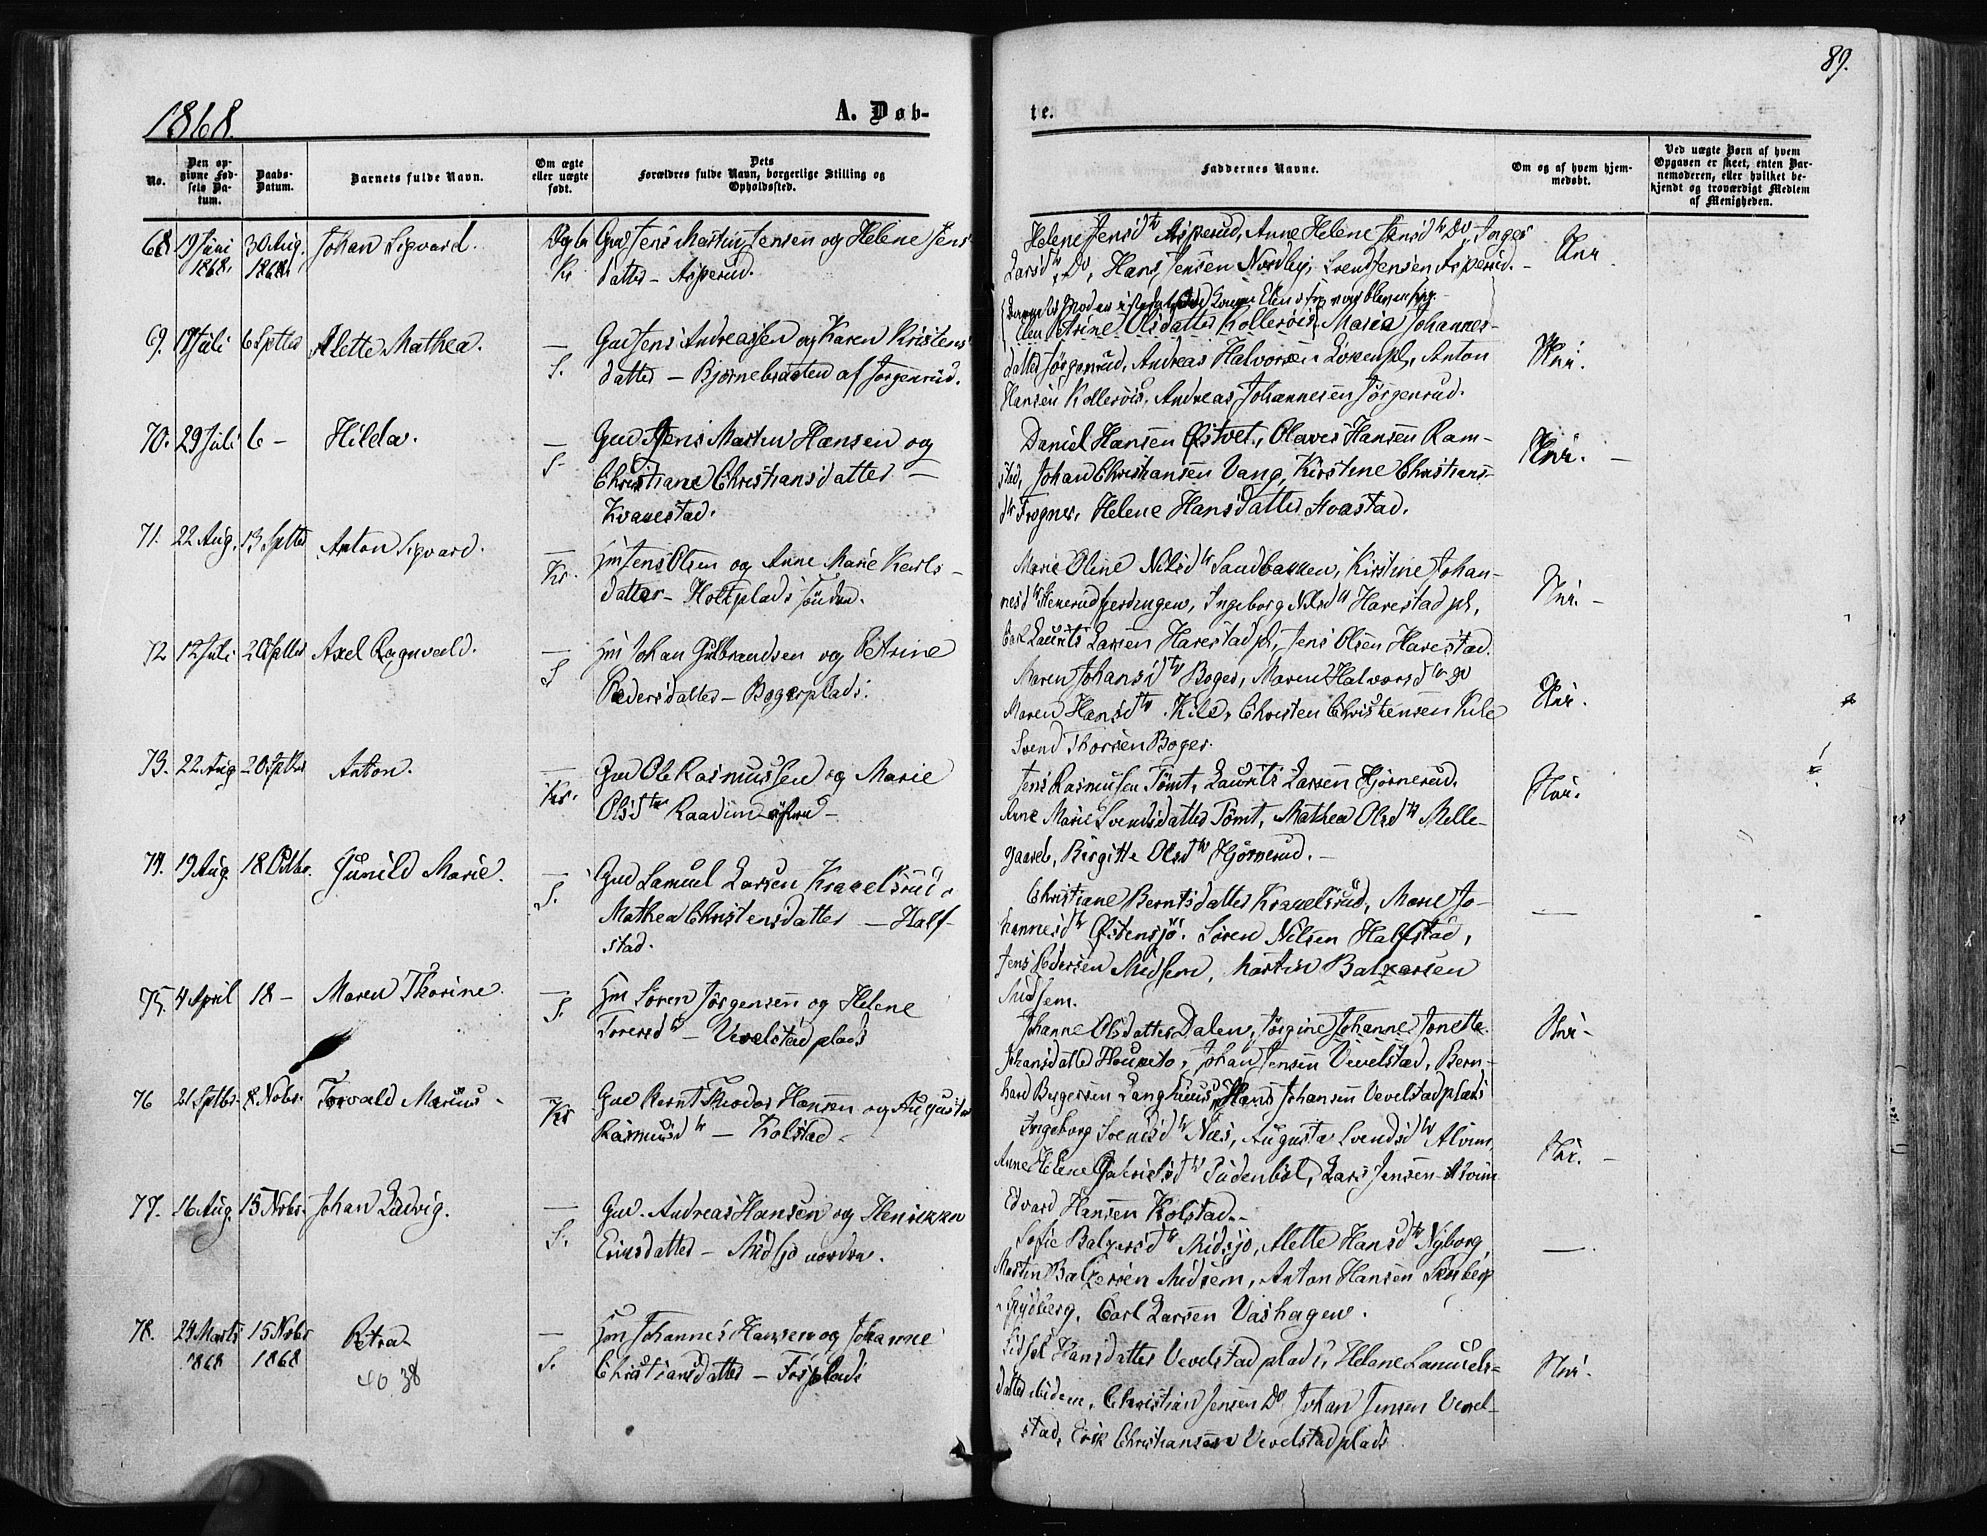 89.
1868.
A. Døb-
te.
No.
Den op-
givne Fød-
sels Da-
tum.
Daabs-
Datum.
Barnets fulde Navn.
Om ægte
eller uægte
født.
Dets
Forældres fulde Navn, borgerlige Stilling og
Opholdssted.
Faddernes Navne.
Om og af hvem hjem-
medøbt.
Ved uægte Børn af hvem
Opgaven er skeet, enten Bar-
nemoderen, eller hvilket be-
kjendt og troværdigt Medlem
af Menigheden.
68 19 Juni 30 Aug. Johan Sigvard. Ægte Gud Jens Martin Jensen og Helene Jens
1868. 1868. Kr datter - Asperud.
Helene Jensdtr Asperud, Anne Helene Jensdtr Do, Inger
Larsdtr Do, Hans Jensen Nordby, Svend Jensen Asperud. -
69. Juli 6 Septbr Alette Mathea. — Gud Jens Andreassen og Karen Kristens
S. datter - Bjørnebraaten af Jørgenrud.
Elen Petrine Olsdatter Kollerøis, Maria Johannes-
datter Jørgenrud, Andreas Halvorsen pl, Anton
Hansen Kollerøis, Andreas Johannesen Jørgenrud.
70. 29 Juli 6 - Hilda. — Gud Jens Martin Hansen og
S. Christiane Christiansdatter —
Kvavestad.
Daniel Hansen Østvet, Olaves Hansen Ram-
stad, Johan Christiansen Vang, Kirstine Christians-
dtr Frogner, Helene Hansdatter Svastad.
71. 22 Aug. 13 Septbr Anton Sigvard. — Hm Jens Olsen og Anne Marie Karls-
Kr. datter - Holtplads søndre.
Marie Oline Nilsdtr Sandbakken, Kirstine Johan-
nesdtr, Ingeborg Nilsdtr Harestad pl,
Carl Laurits Larsen Harestad pl, Jens Olsen Harestad.
72 12 Juli 20 Septbr Axel Ragnvald. — Hm Johan Gulbrandsen og Petrine
S Pedersdatter - Bogerplads.
Maren Johansdtr Boger, Maren Halvorsdtr Do
Maren Hansdtr Kile, Christen Christensen Kile
Svend Thorsen Boger.
73. 22 Aug 20 Septbr Anton. — Gud Ole Rasmussen og Marie
Kr. Olsdtr Raadim -
Jens Rasmussen Tömt, Laurits Larsen Hjørnerud.
Anne Marie Svendsdatter Tömt, Mathea Olsdtr Melle-
gaard, Birgitte Olsdtr Hjørnerud. -
74. 19 Aug. 18 Octbr. Gunild Marie. — Gud Samuel Larsen Kraaelsrud &
S. Mathea Christensdatter — Half-
stad.
Christiane Berntsdatter Kraaelsrud, Marie Jo-
hannesdtr Østensjø. Søren Nilsen Halfstad,
Jens Pedersen Midsem, Martin Balzersen
Midsem.
75. 4 April 18 - Maren Thorine. — Hm Søren Jørgensen og Helene
S. Toresdtr - Vevelstad plads
Johanne Olsdatter Dalen, Jørgine Johanne Jonette
Johansdatter, Johan Jensen Vevelstad, Bern-
hard Bergersen Langhuus, Hans Johansen Vevelstad plads
76 21 Septbr 8 Novbr. Torvald Marius - — Gud Bernt Theodor Hansen og Augusta
Kr Rasmusdtr — Kolstad -
Ingeborg Svendsdtr Næs, Augusta Svendsdtr Alvim,
Anne Helene Gabrielsdtr Sudenböl, Lars Jensen Alvim
Edvard Hansen Kolstad. -
77. 16 Aug. 15 Novbr. Johan Ludvig. — Gud. Andreas Hansen og Henrikke
S. datter - Midsjø nordre.
Sofie Balzersdtr Midsjø, Alette Hansdtr Nyborg,
Martin Balzersen Midsem, Anton Hansen
Spydberg, Carl Larsen Vashagen.
78. 24 Marts 15 Novbr Petra — Hm Johannes Hansen og Johanne
1868 1868 S. Christiansdatter - Fosplads
40 38
Sidsel Hansdatter Vevelstad plads, Helene Samuels-
datter Midem, Christian Jensen Do Johan Jensen Vevel-
stad, Erik Christiansen Vevelstad plads